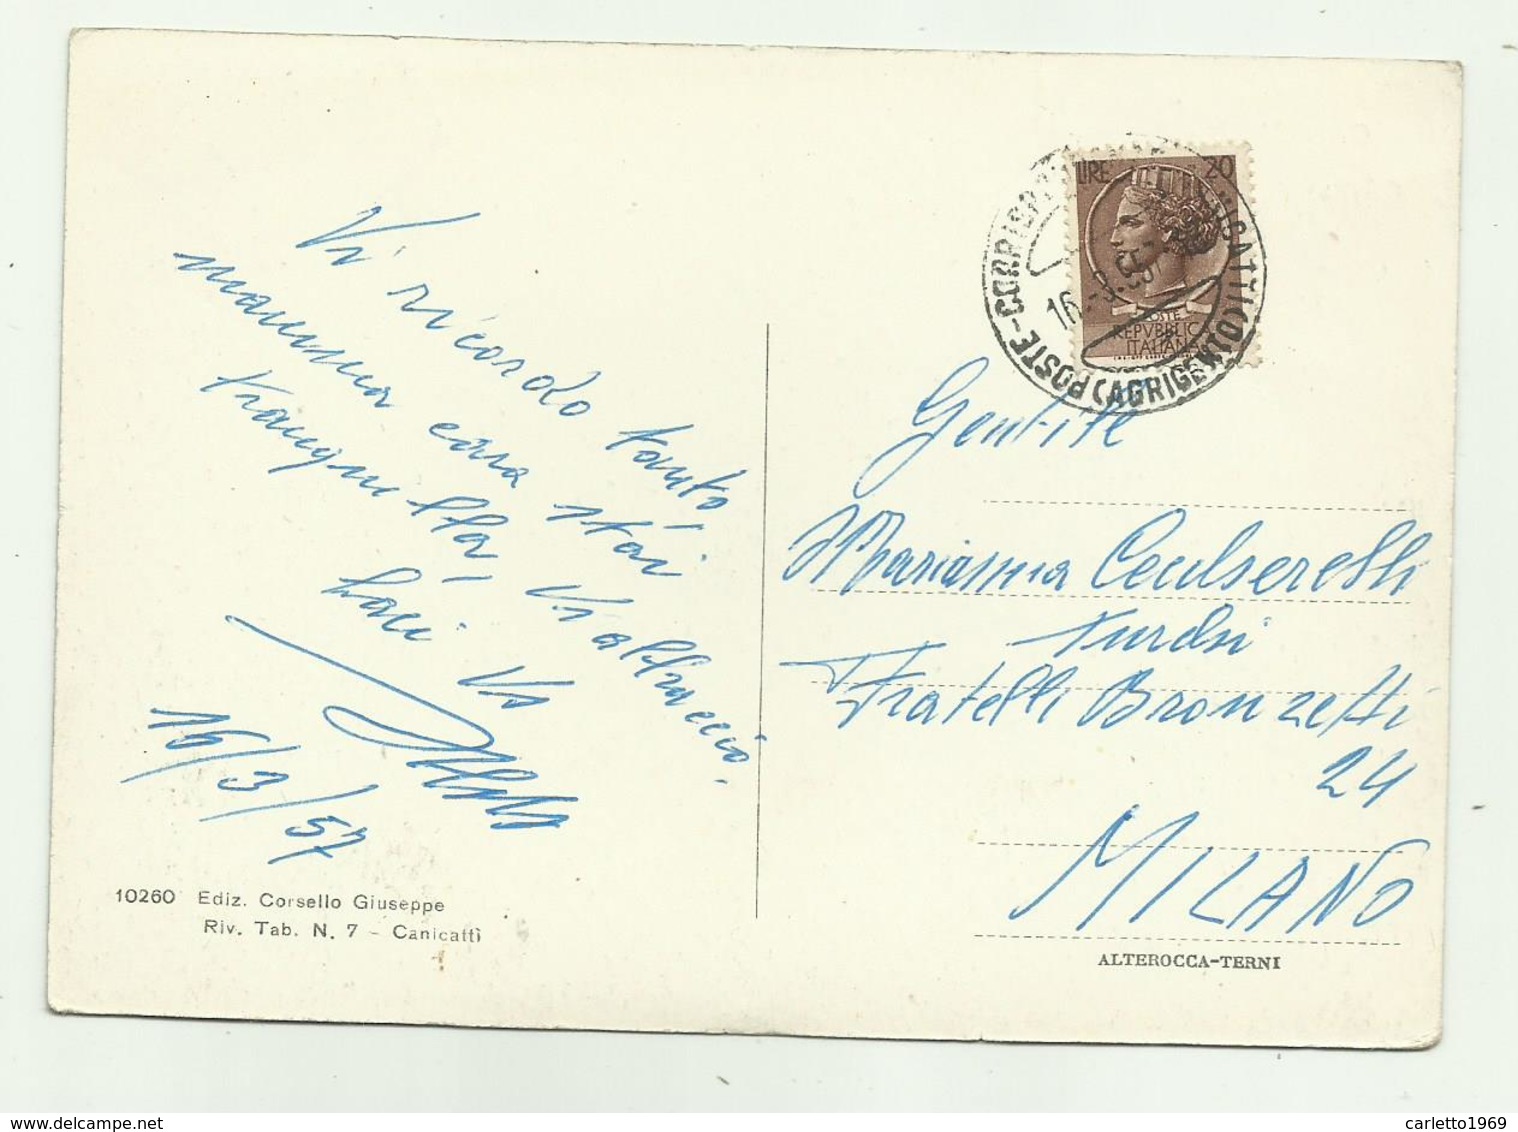 Vi ricordo tanto,
mamma cara stai
tranquilla, Vi abbraccio.
baci Vs
16/3/57
10260 Ediz. Corsello Giuseppe
Riv. Tab. N. 7 - Canicattì
LIRE 20
POSTE
REPVBBLICA
ITALIANA
POSTE-CORRISPONDENZE
(AGRIGENTO)
16.-3.57
Gentile
Marianna
Turdsi
Fratelli Bronzetti
24
MILANO
ALTEROCCA-TERNI
carletto1969